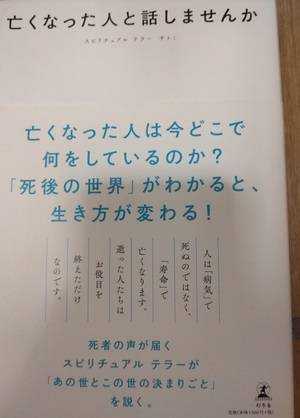 亡くなった人と話しませんか
スピリチュアル テラー サトミ
亡くなった人は今どこで
何をしているのか?
「死後の世界」がわかると、
生き方が変わる!
人は「病気」で
死ぬのではなく、
「寿命」で
亡くなります。
逝った人たちは
お役目を
終えただけ
なのです。
死者の声が届く
スピリチュアル テラーが
「あの世とこの世の決まりごと」
を説く。
幻冬舎